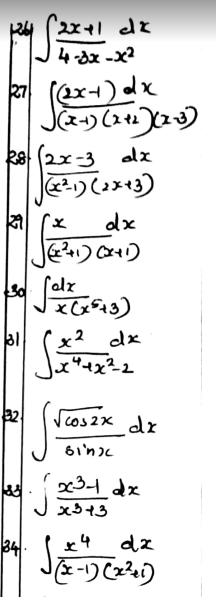 26 ∫ 2x+1 / 4-3x-x² dx
27 ∫ (2x-1) dx / (x-1)(x+2)(x-3)
28 ∫ 2x-3 / (x²-1)(2x+3) dx
29 ∫ x / (x²+1)(x+1) dx
30 ∫ dx / x(x⁵+3)
31 ∫ x² / x⁴+x²-2 dx
32 ∫ √cos2x / sinx dx
33 ∫ x³-1 / x³+3 dx
34. ∫ x⁴ / (x-1)(x²+1) dx